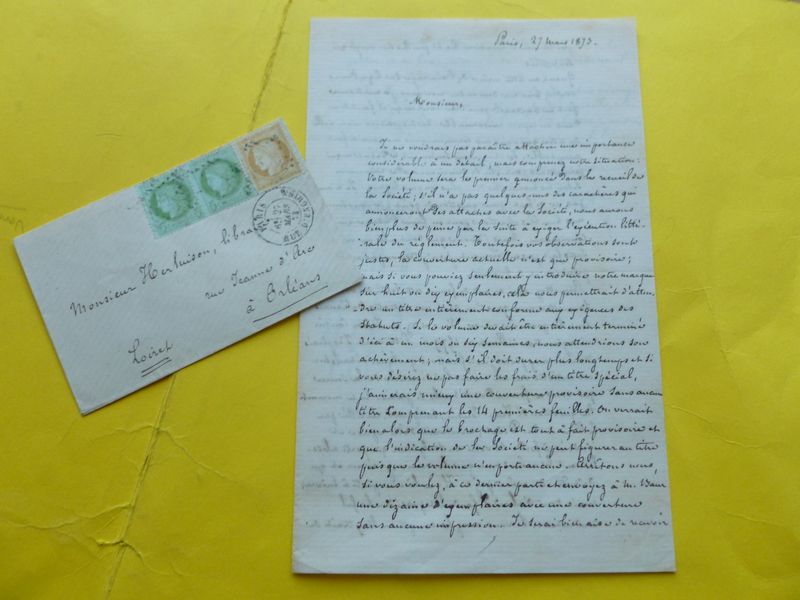 Paris, 27 mars 1873.
Monsieur,
Je ne voudrais pas paraître attacher une importance
considérable à un détail ; mais comprenez notre situation :
Votre volume sera le premier annoncé dans le recueil de
la Société ; s'il n'a pas quelques-uns des caractères qui
annonceront des attaches avec la Société, nous aurons
bien plus de peine par la suite à exiger l'exécution litté-
rale du réglement. Toutefois vos observations sont
justes, la couverture actuelle n'est que provisoire ;
mais si vous pouviez seulement y introduire notre marque
sur huit ou dix exemplaires, cela nous permettrait d'atten-
dre un titre entièrement conforme aux exigences des
Statuts. Si le volume devait être entièrement terminé
d'ici à un mois ou six semaines, nous attendrions son
achèvement ; mais s'il doit durer plus longtemps et si
vous désirez ne pas faire les frais d'un titre spécial,
j'aimerais mieux une couverture provisoire sans aucun
titre comprenant les 14 premières feuilles. On verrait
bien alors que le brochage est tout à fait provisoire et
que l'indication de la Société ne peut figurer au titre
puisque le volume n'en porte aucun. Arrêtons nous,
si vous voulez, à ce dernier parti et envoyez à M.
une dizaine d'exemplaires avec une couverture
sans aucune impression. Je serai bien aise de recevoir
Monsieur Herluison, libra
rue Jeanne d'Arc
à Orléans
Loiret
PARIS
27
MARS